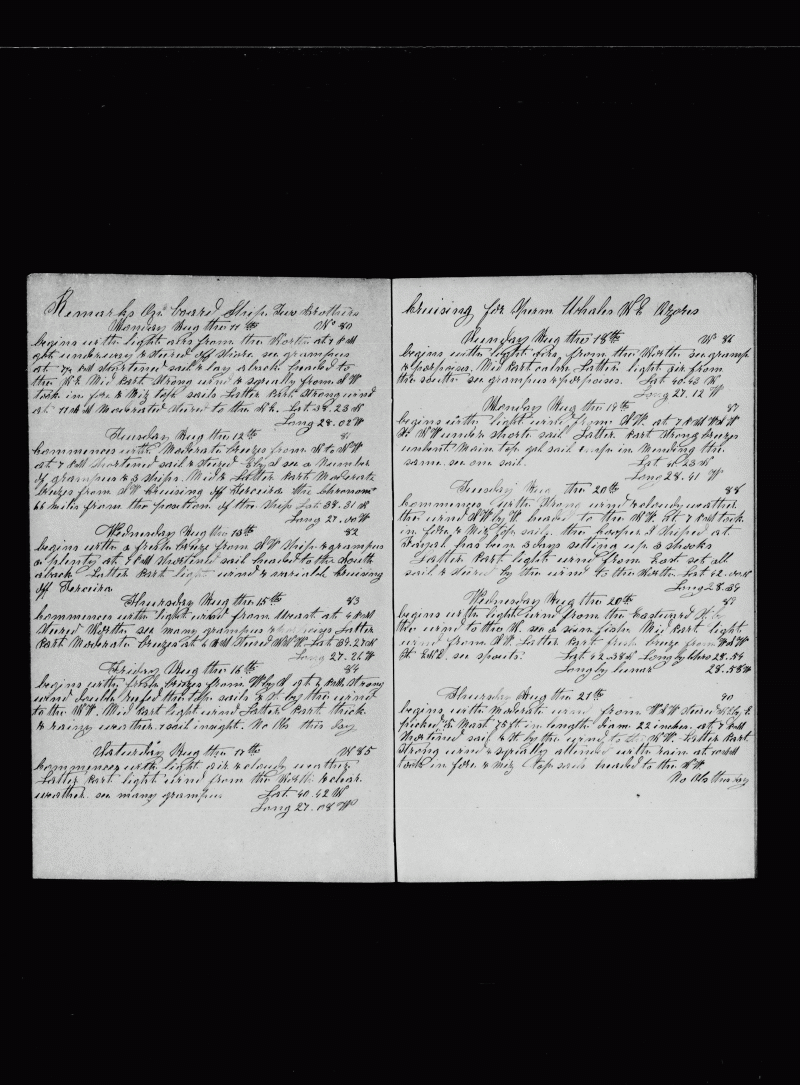 Remarks On board Ship Two Brothers
Monday Aug the 11th No 80
begins with light airs from the North at 7 AM
got underway & steered off shore see grampus
at 7 PM shortened sail & lay aback headed to
the N E Mid Part Strong wind & squally from S W
took in fore & Miz top sails Latter Part Strong wind
at 11 AM Moderated Steered to the N E. Lat 38.23 N
Long 28.02 W
Tuesday Aug the 12th 81
commences with Moderate breezes from N to N W
at 7 PM shortened sail & steered E by S see a Number
of grampus & 3 ships. Mid & Latter Part Moderate
breezes from S W cruising off Terceira the Chronom
66 miles from the position of the Ship Lat 38.31 N
Long 27.00 W
Wednesday Aug the 13th 82
begins with a fresh breeze from S W Ship & grampus
a plenty at 7 PM shortened sail headed to the South
aback Latter Part light wind & variable Cruising
off Terceira
Thursday Aug the 15th 83
commences with light wind from West at 4 PM
steered North see many grampus & Latter
Part Moderate breezes at 6 AM Steered N N W. Lat 39.27 N
Long 27.26 W
Friday Aug the 16th 84
begins with fresh breezes from W by S at 7 PM strong
wind double reefed the top sails & St by the wind
to the N W. Mid Part light wind Latter Part thick
& rainy weather. 1 sail in sight. No Obs this day
Saturday Aug the 17th No 85
commences with light air & cloudy weather
Latter Part light wind from the North & clear
weather. see many grampus Lat 40.42 N
Long 27.08 W
Cruising for Sperm Whales N E Azores
Sunday Aug the 18th No 86
begins with light airs from the North see gramp
& porpoises. Mid Part calm Latter light air from
the South see grampus & porpoises. Lat 40.43 N
Long 27.12 W
Monday Aug the 19th 87
begins with light wind from S W. at 7 PM
N W under short sail Latter Part Strong breezes
unbent Main top gal sail & in Mending the
same. see one sail. Lat 23 N
Long 28.41 W
Tuesday Aug the 20th 88
commences with strong wind & cloudy weather
the wind S W by W. headed to the N W. at 7 PM took
in fore & Miz top sail. the cooper I shiped at
Fayal has been 3 days setting up 3 shooks
Latter Part light wind from East set all
sail & steered by the wind to the North Lat 42.00 N
Long 28.39
Wednesday Aug the 20th 89
begins with light wind from the Eastward St by
the wind to the N. see a Sun fish Mid Part light
wind from S W. Latter Part fresh breeze from
St see spouts. Lat 42.38 N Long by Chro 28.54
Long by lunar 28.58 W
Thursday Aug the 21th 90
begins with Moderate wind from W S W Steered N by E
picked a Mast 78 ft in length diam 22 inches. at 7 PM
shortened sail & St by the wind to N W. Latter Part
strong wind & squally attended with rain at 10 AM
took in fore & Miz top sails headed to the N W
No Obs this day